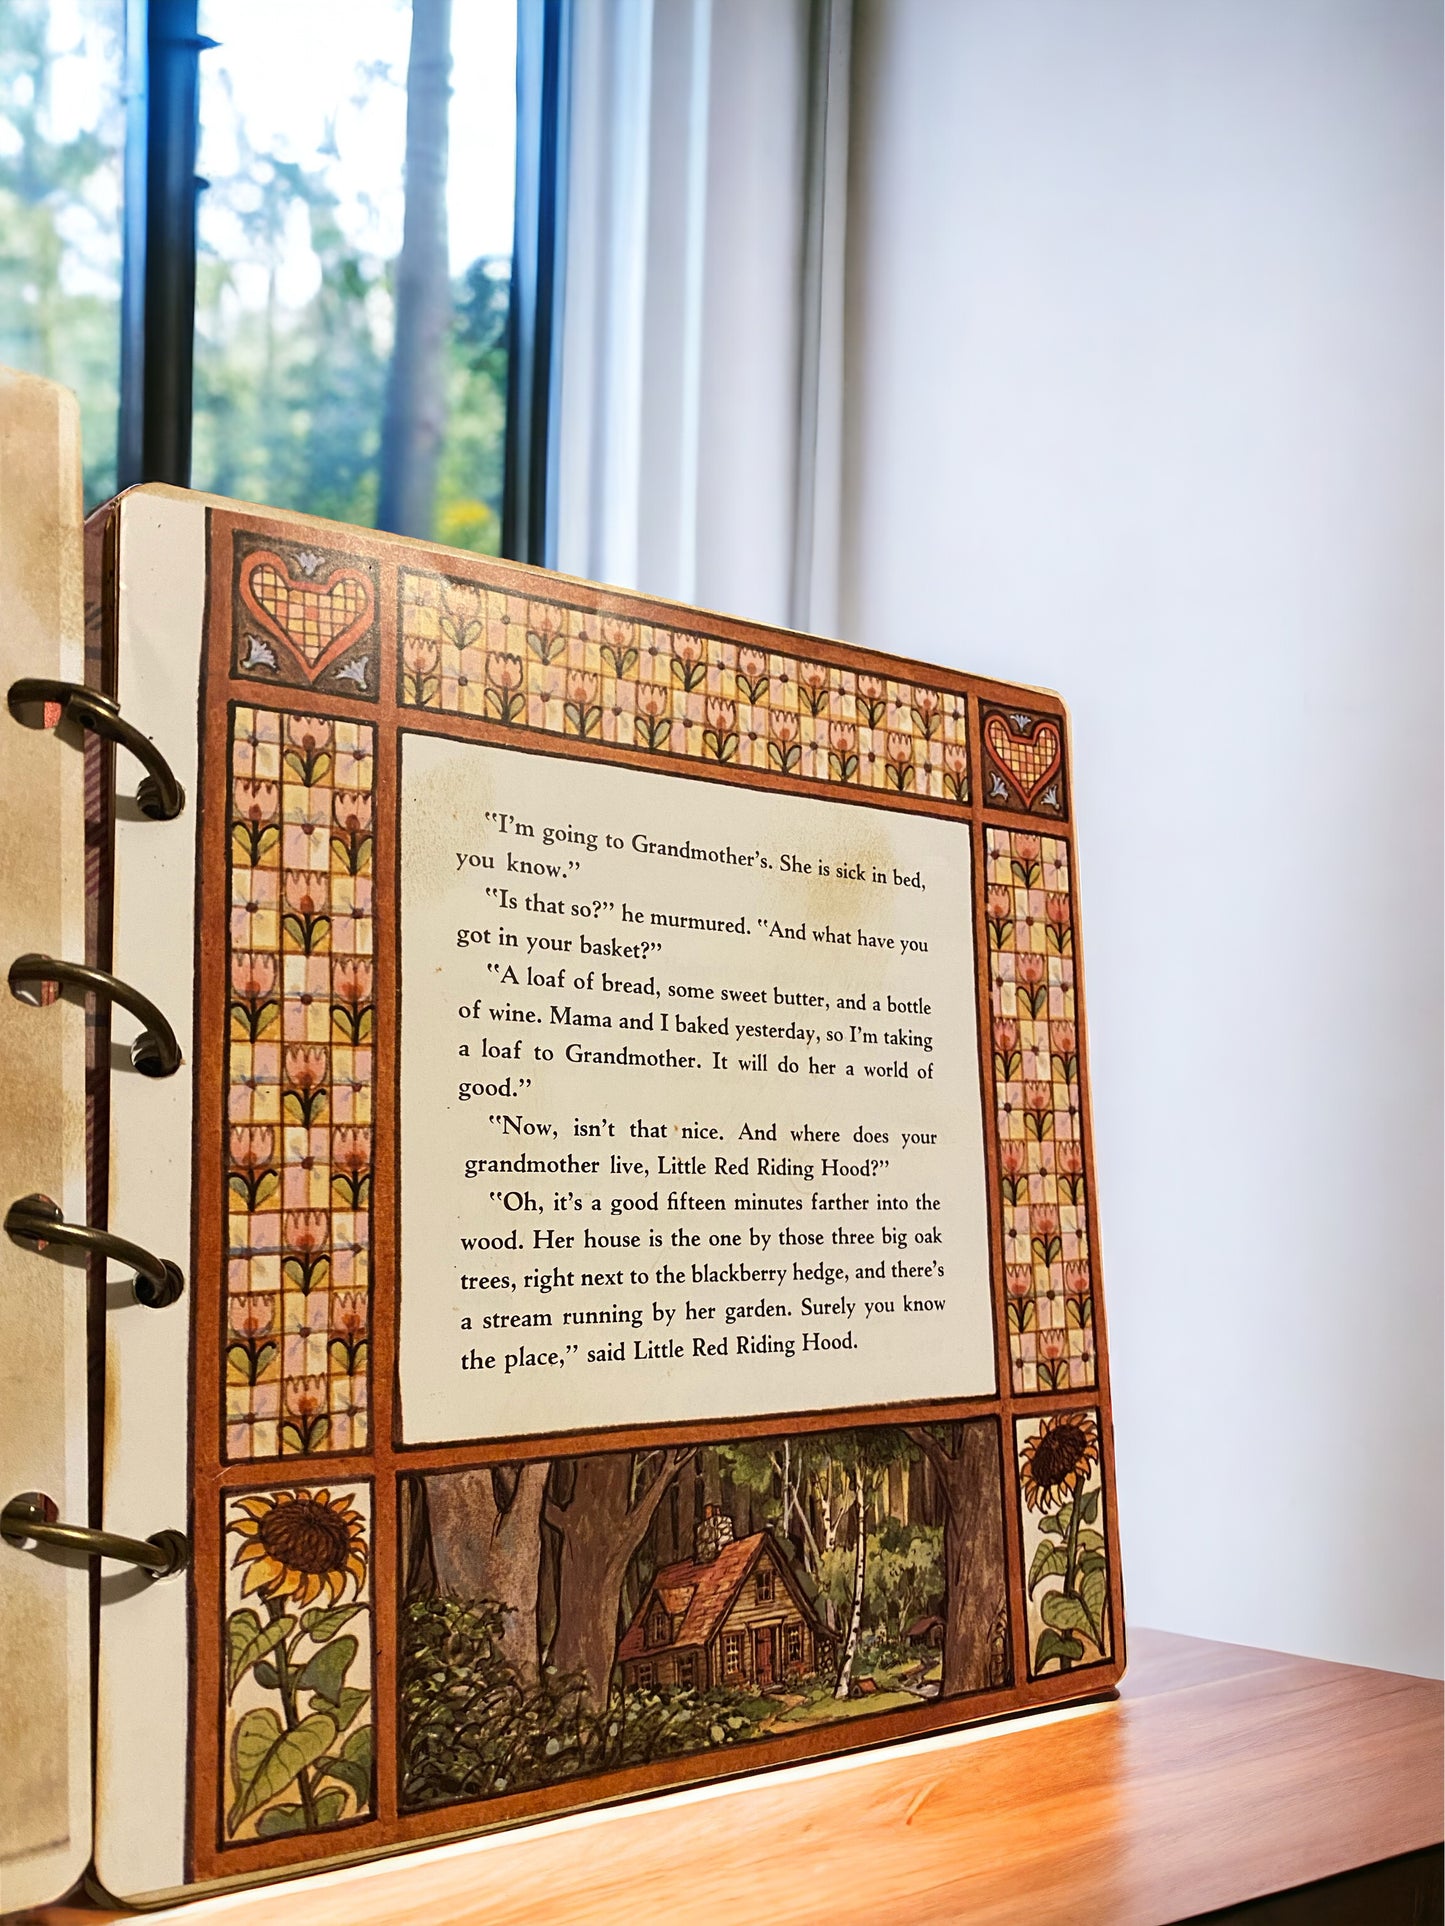 “I’m going to Grandmother’s. She is sick in bed,
you know.”
“Is that so?” he murmured. “And what have you
got in your basket?”
“A loaf of bread, some sweet butter, and a bottle
of wine. Mama and I baked yesterday, so I’m taking
a loaf to Grandmother. It will do her a world of
good.”
“Now, isn’t that nice. And where does your
grandmother live, Little Red Riding Hood?”
“Oh, it’s a good fifteen minutes farther into the
wood. Her house is the one by those three big oak
trees, right next to the blackberry hedge, and there’s
a stream running by her garden. Surely you know
the place,” said Little Red Riding Hood.